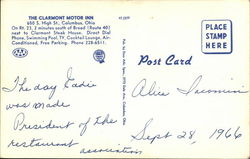 THE CLARMONT MOTOR INN
650 S. High St., Columbus, Ohio
On Rt. 23, 2 minutes south of Broad (Route 40)
next to Clarmont Steak House. Direct Dial
Phone, Swimming Pool, TV, Cocktail Lounge, Air-
Conditioned, Free Parking. Phone 228-6511.
Post Card
PLACE
STAMP
HERE
The day Eadie
was made
President of the
restaurant
association
Alice
Sept 28, 1966